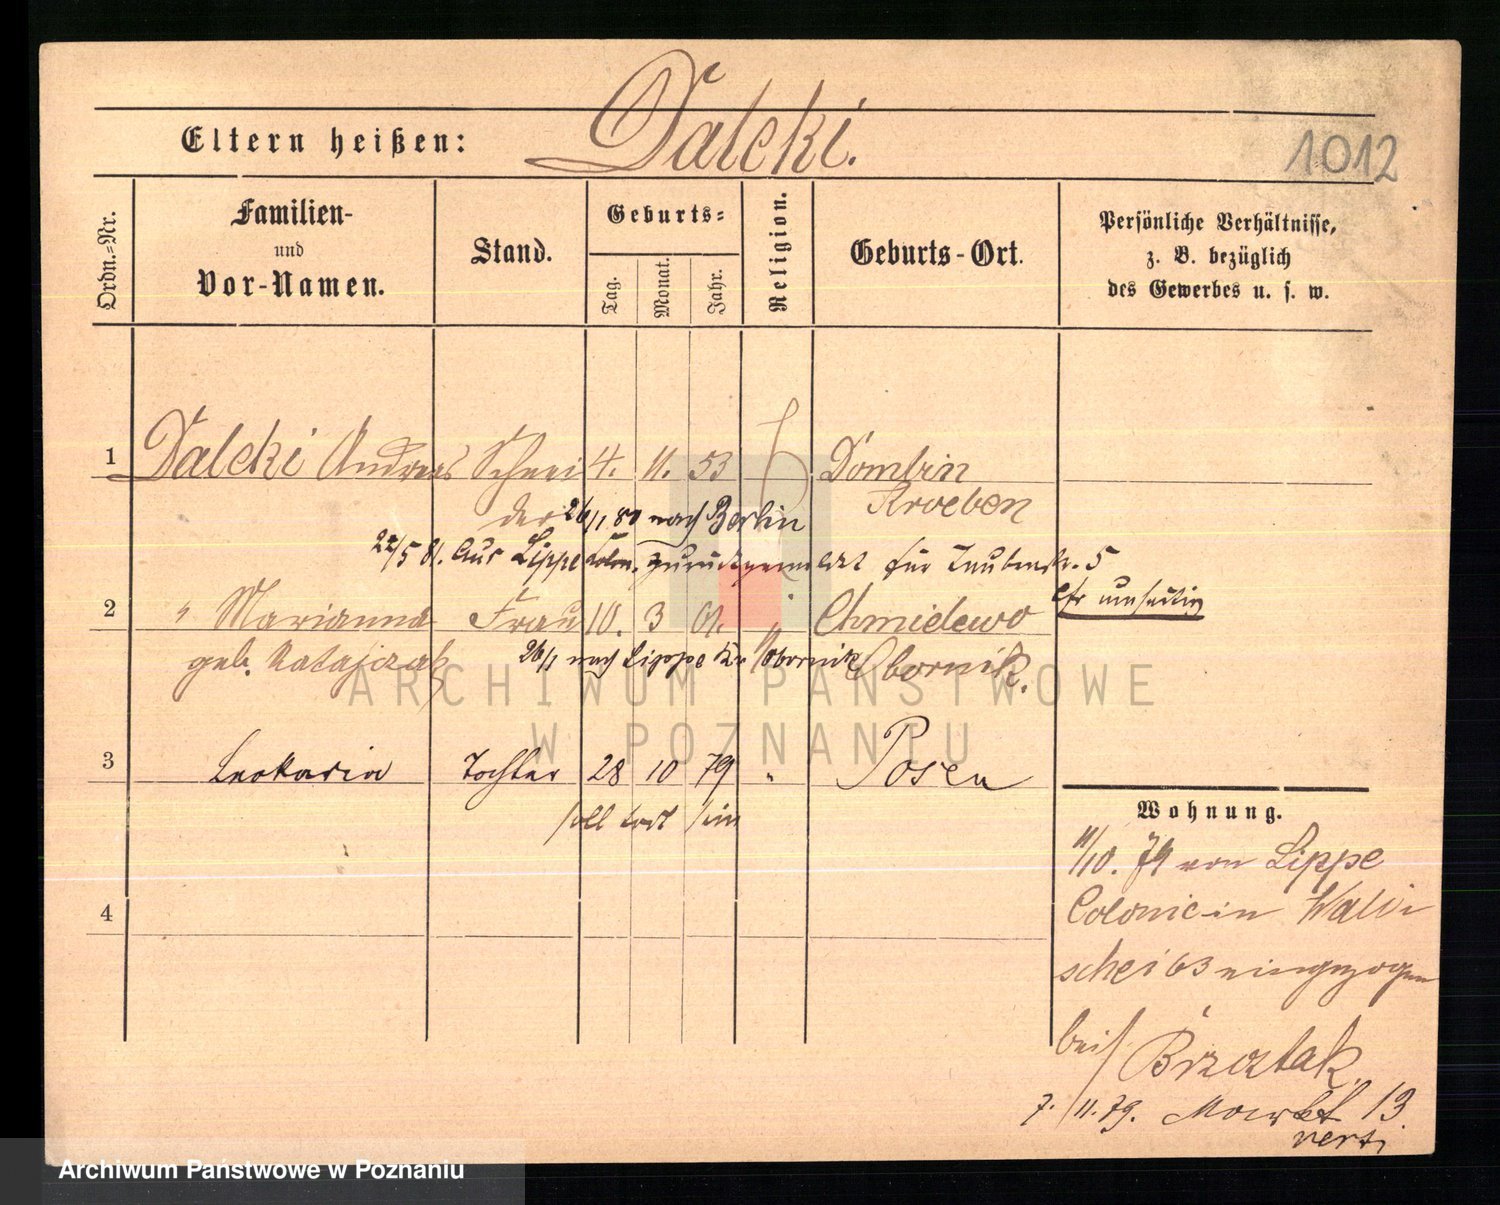 Eltern heißen: Dalcki.
1012
Ordn.-Nr.
Familien-
und
Vor-Namen.
Stand.
Geburts-
Tag.
Monat.
Jahr.
Religion.
Geburts-Ort.
Persönliche Verhältnisse,
z. B. bezüglich
des Gewerbes u. s. w.
1 Dalcki Andreas Schnei 4. 11. 53 Dombin
Kroeben
der 26/1 80 nach Berlin
22/5 81. Aus Lippe Colon. zurückgemeldet für Taubenstr. 5
cfr umseitig
2 " Marianna Frau 10. 3 " Chmielewo
geb. Ratajczak Obornik.
26/1 nach Lippe Kr Obornik
3 Leokadia Tochter 28 10 79 " Posen
soll todt sein
4
Wohnung.
11/10. 79 von Lippe
Colonie in Walli
schei 63 eingezogen
bei Brzostak
7. /11. 79. Markt 13.
vert.
ARCHIWUM PAŃSTWOWE
W POZNANIU
Archiwum Państwowe w Poznaniu